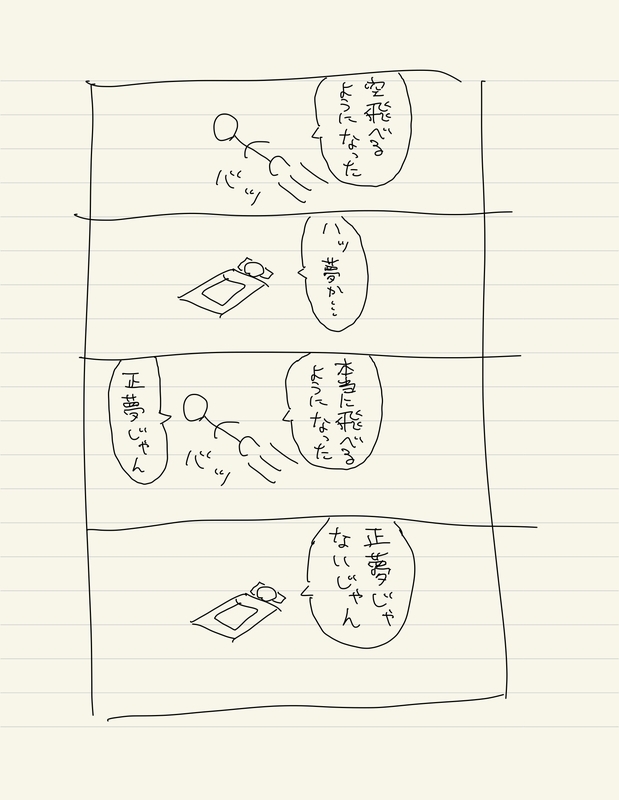 空飛べる
ようになった
バッ
ハッ
夢か…
本当に飛べる
ようになった
バッ
正夢じゃん
正夢じゃ
ないじゃん